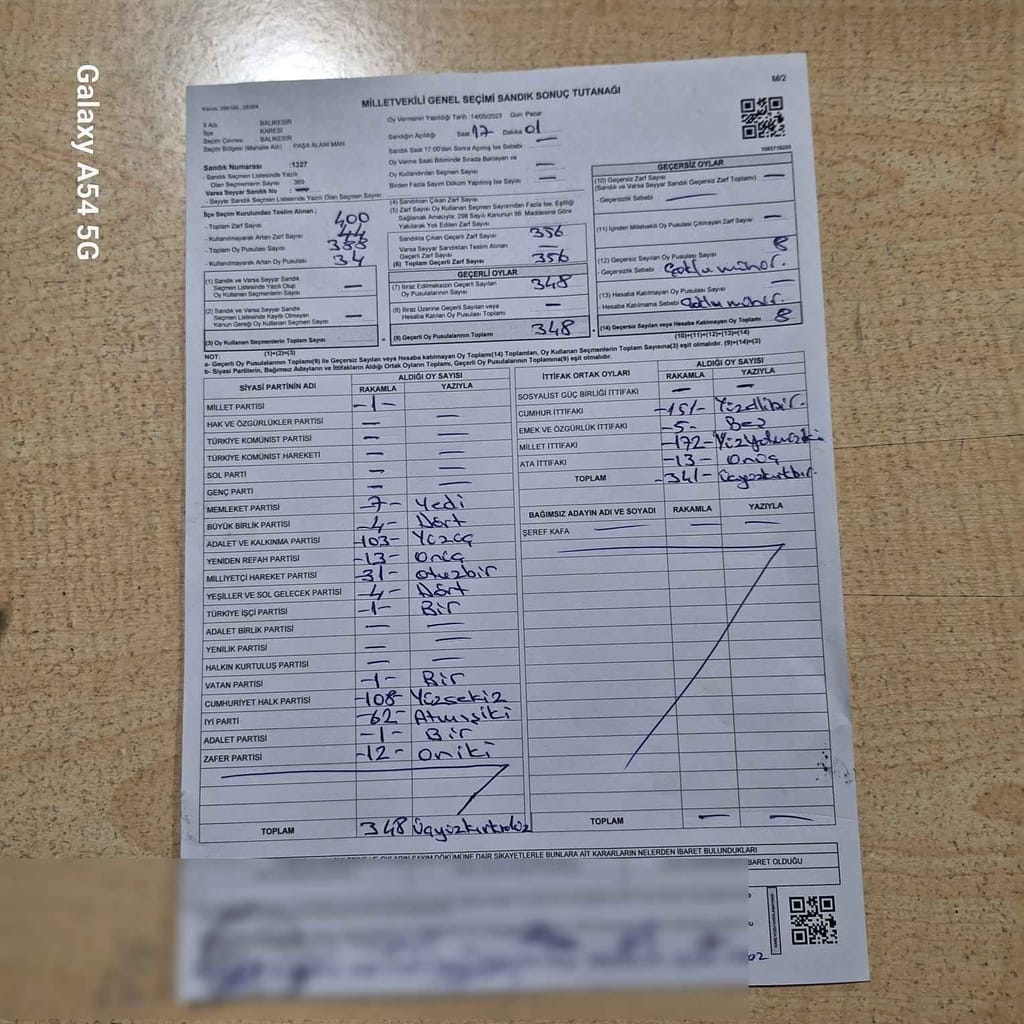 Galaxy A54 5G
M/2
MİLLETVEKİLİ GENEL SEÇİMİ SANDIK SONUÇ TUTANAĞI
İl Adı BALIKESİR
İlçe KARESİ
Seçim Çevresi BALIKESİR
Seçim Bölgesi (Mahalle Adı) PAŞA ALANI MAH
Oy Vermenin Yapıldığı Tarih :14/05/2023 Gün: Pazar
Sandığın Açıldığı Saat 17 Dakika 01
Sandık Saat 17:00'den Sonra Açılmış İse Sebebi —
Oy Verme Saati Bitiminde Sırada Bekleyen ve
Oy Kullandırılan Seçmen Sayısı —
Birden Fazla Sayım Döküm Yapılmış İse Sayısı —
Sandık Numarası :1327
- Sandık Seçmen Listesinde Yazılı
Olan Seçmenlerin Sayısı 389
Varsa Seyyar Sandık No : —
- Seyyar Sandık Seçmen Listesinde Yazılı Olan Seçmen Sayısı
İlçe Seçim Kurulundan Teslim Alınan ;
- Toplam Zarf Sayısı 400
- Kullanılmayarak Artan Zarf Sayısı 44
- Toplam Oy Pusulası Sayısı
- Kullanılmayarak Artan Oy Pusulası 34
(1) Sandık ve Varsa Seyyar Sandık
Seçmen Listesinde Yazılı Olup
Oy Kullanan Seçmenlerin Sayısı —
(2) Sandık ve Varsa Seyyar Sandık
Seçmen Listesinde Kayıtlı Olmayan
Kanun Gereği Oy Kullanan Seçmen Sayısı —
(3) Oy Kullanan Seçmenlerin Toplam Sayısı
(1)+(2)=(3)
(4) Sandıktan Çıkan Zarf Sayısı
(5) Zarf Sayısı Oy Kullanan Seçmen Sayısından Fazla İse, Eşitliği
Sağlamak Amacıyla; 298 Sayılı Kanunun 98. Maddesine Göre
Yakılarak Yok Edilen Zarf Sayısı
Sandıkta Çıkan Geçerli Zarf Sayısı 356
Varsa Seyyar Sandıktan Teslim Alınan
Geçerli Zarf Sayısı —
(6) Toplam Geçerli Zarf Sayısı 356
GEÇERLİ OYLAR
(7) İtiraz Edilmeksizin Geçerli Sayılan
Oy Pusulalarının Sayısı 348
(8) İtiraz Üzerine Geçerli Sayılan veya
Hesaba Katılan Oy Pusulası Toplamı —
(9) Geçerli Oy Pusulalarının Toplamı 348
GEÇERSİZ OYLAR
(10) Geçersiz Zarf Sayısı
(Sandık ve Varsa Seyyar Sandık Geçersiz Zarf Toplamı) —
- Geçersizlik Sebebi —
(11) İçinden Milletvekili Oy Pusulası Çıkmayan Zarf Sayısı —
(12) Geçersiz Oy Pusulası Sayısı 8
- Geçersizlik Sebebi
(13) Hesaba Katılmayan Oy Pusulası Sayısı —
Hesaba Katılmama Sebebi
(14) Geçersiz Sayılan veya Hesaba Katılmayan Oy Toplamı 8
(10)+(11)+(12)+(13)=(14)
NOT:
a- Geçerli Oy Pusulalarının Toplamı(9) ile Geçersiz Sayılan veya Hesaba katılmayan Oy Toplamı(14) Toplamları, Oy Kullanan Seçmenlerin Toplam Sayısına(3) eşit olmalıdır. (9)+(14)=(3)
b- Siyasi Partilerin, Bağımsız Adayların ve İttifakların Aldığı Ortak Oyların Toplamı, Geçerli Oy Pusulalarının Toplamına(9) eşit olmalıdır.
SİYASİ PARTİNİN ADI ALDIĞI OY SAYISI
RAKAMLA YAZIYLA
MİLLET PARTİSİ -1-
HAK VE ÖZGÜRLÜKLER PARTİSİ — —
TÜRKİYE KOMÜNİST PARTİSİ — —
TÜRKİYE KOMÜNİST HAREKETİ — —
SOL PARTİ — —
GENÇ PARTİ — —
MEMLEKET PARTİSİ -7- Yedi
BÜYÜK BİRLİK PARTİSİ -4- Dört
ADALET VE KALKINMA PARTİSİ -103- Yüzüç
YENİDEN REFAH PARTİSİ -13- Onüç
MİLLİYETÇİ HAREKET PARTİSİ -31- otuzbir
YEŞİLLER VE SOL GELECEK PARTİSİ -4- Dört
TÜRKİYE İŞÇİ PARTİSİ -1- Bir
ADALET BİRLİK PARTİSİ — —
YENİLİK PARTİSİ — —
HALKIN KURTULUŞ PARTİSİ — —
VATAN PARTİSİ -1- Bir
CUMHURİYET HALK PARTİSİ -108- Yüzsekiz
İYİ PARTİ -62- Atmışiki
ADALET PARTİSİ -1- Bir
ZAFER PARTİSİ -12- oniki
TOPLAM 348 Üçyüzkırksekiz
İTTİFAK ORTAK OYLARI ALDIĞI OY SAYISI
RAKAMLA YAZIYLA
SOSYALİST GÜÇ BİRLİĞİ İTTİFAKI — —
CUMHUR İTTİFAKI -151- Yüzellibir.
EMEK VE ÖZGÜRLÜK İTTİFAKI -5- Beş
MİLLET İTTİFAKI -172- Yüzyetmişiki
ATA İTTİFAKI -13- onüç
TOPLAM -341- üçyüzkırkbir.
BAĞIMSIZ ADAYIN ADI VE SOYADI RAKAMLA YAZIYLA
ŞEREF KAFA — — —
TOPLAM — —
OYLARIN SAYIM DÖKÜMÜNE DAİR ŞİKAYETLERLE BUNLARA AİT KARARLARIN NELERDEN İBARET BULUNDUKLARI
İBARET OLDUĞU